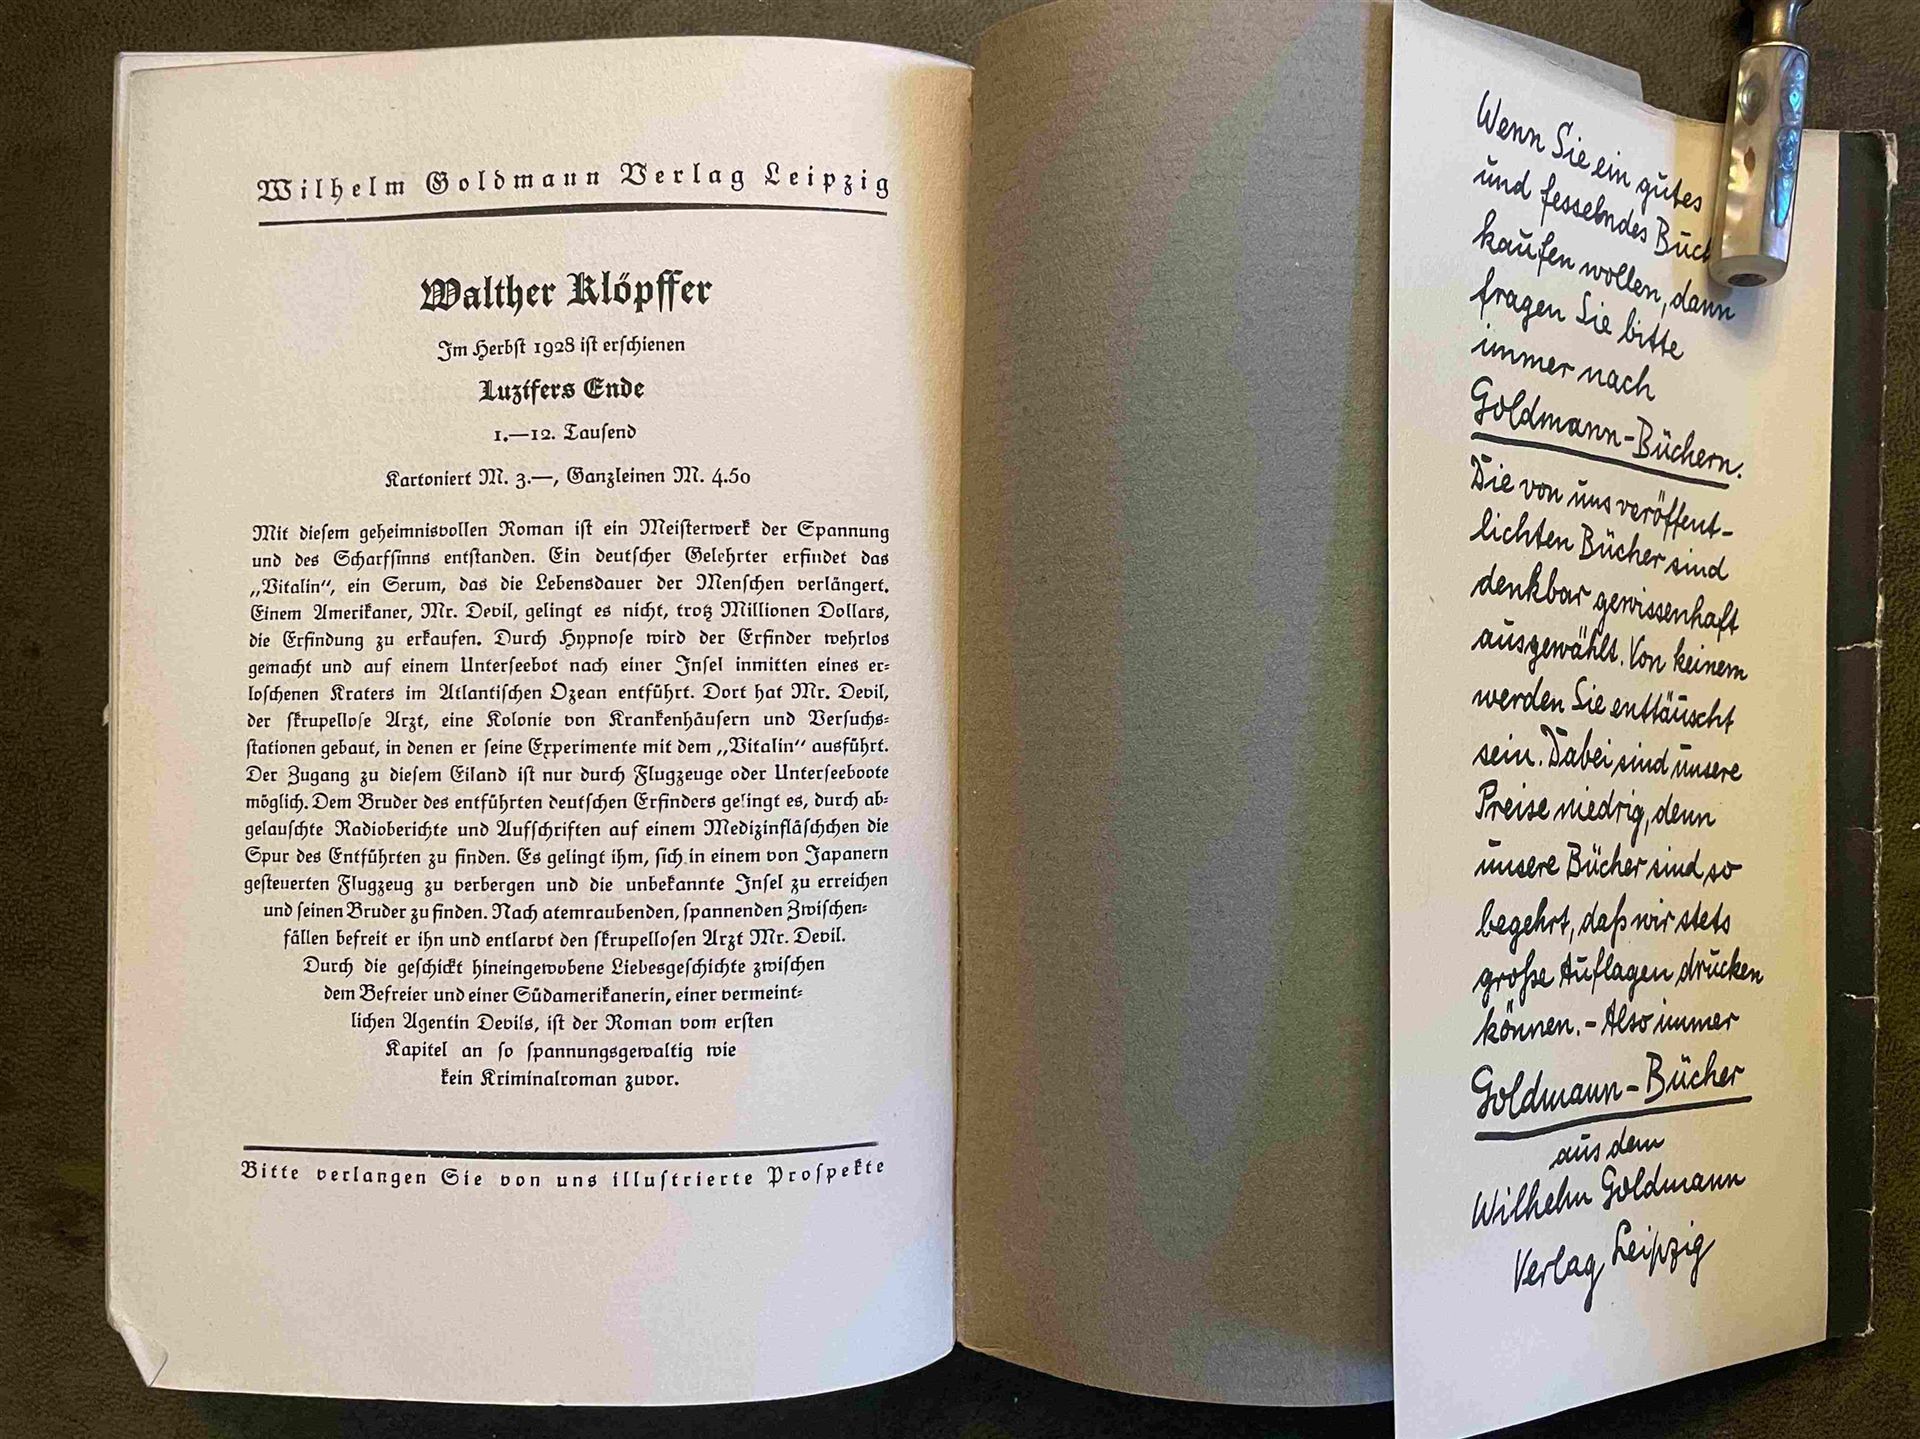 Wilhelm Goldmann Verlag Leipzig
Walther Klöpffer
Im Herbst 1928 ist erschienen
Luzifers Ende
1.—12. Tausend
Kartoniert M. 3.—, Ganzleinen M. 4.50
Mit diesem geheimnisvollen Roman ist ein Meisterwerk der Spannung
und des Scharfsinns entstanden. Ein deutscher Gelehrter erfindet das
„Vitalin“, ein Serum, das die Lebensdauer der Menschen verlängert.
Einem Amerikaner, Mr. Devil, gelingt es nicht, trotz Millionen Dollars,
die Erfindung zu erkaufen. Durch Hypnose wird der Erfinder wehrlos
gemacht und auf einem Unterseebot nach einer Insel inmitten eines er-
loschenen Kraters im Atlantischen Ozean entführt. Dort hat Mr. Devil,
der skrupellose Arzt, eine Kolonie von Krankenhäusern und Versuchs-
stationen gebaut, in denen er seine Experimente mit dem „Vitalin“ ausführt.
Der Zugang zu diesem Eiland ist nur durch Flugzeuge oder Unterseeboote
möglich. Dem Bruder des entführten deutschen Erfinders gelingt es, durch ab-
gelauschte Radioberichte und Aufschriften auf einem Medizinfläschchen die
Spur des Entführten zu finden. Es gelingt ihm, sich in einem von Japanern
gesteuerten Flugzeug zu verbergen und die unbekannte Insel zu erreichen
und seinen Bruder zu finden. Nach atemraubenden, spannenden Zwischen-
fällen befreit er ihn und entlarvt den skrupellosen Arzt Mr. Devil.
Durch die geschickt hineingewobene Liebesgeschichte zwischen
dem Befreier und einer Südamerikanerin, einer vermeint-
lichen Agentin Devils, ist der Roman vom ersten
Kapitel an so spannungsgewaltig wie
kein Kriminalroman zuvor.
Bitte verlangen Sie von uns illustrierte Prospekte
Wenn Sie ein gutes
und fesselndes Buch
kaufen wollen, dann
fragen Sie bitte
immer nach
Goldmann-Büchern.
Die von uns veröffent-
lichten Bücher sind
denkbar gewissenhaft
ausgewählt. Von keinem
werden Sie enttäuscht
sein. Dabei sind unsere
Preise niedrig, denn
unsere Bücher sind so
begehrt, daß wir stets
große Auflagen drucken
können. - Also immer
Goldmann-Bücher
aus dem
Wilhelm Goldmann
Verlag Leipzig